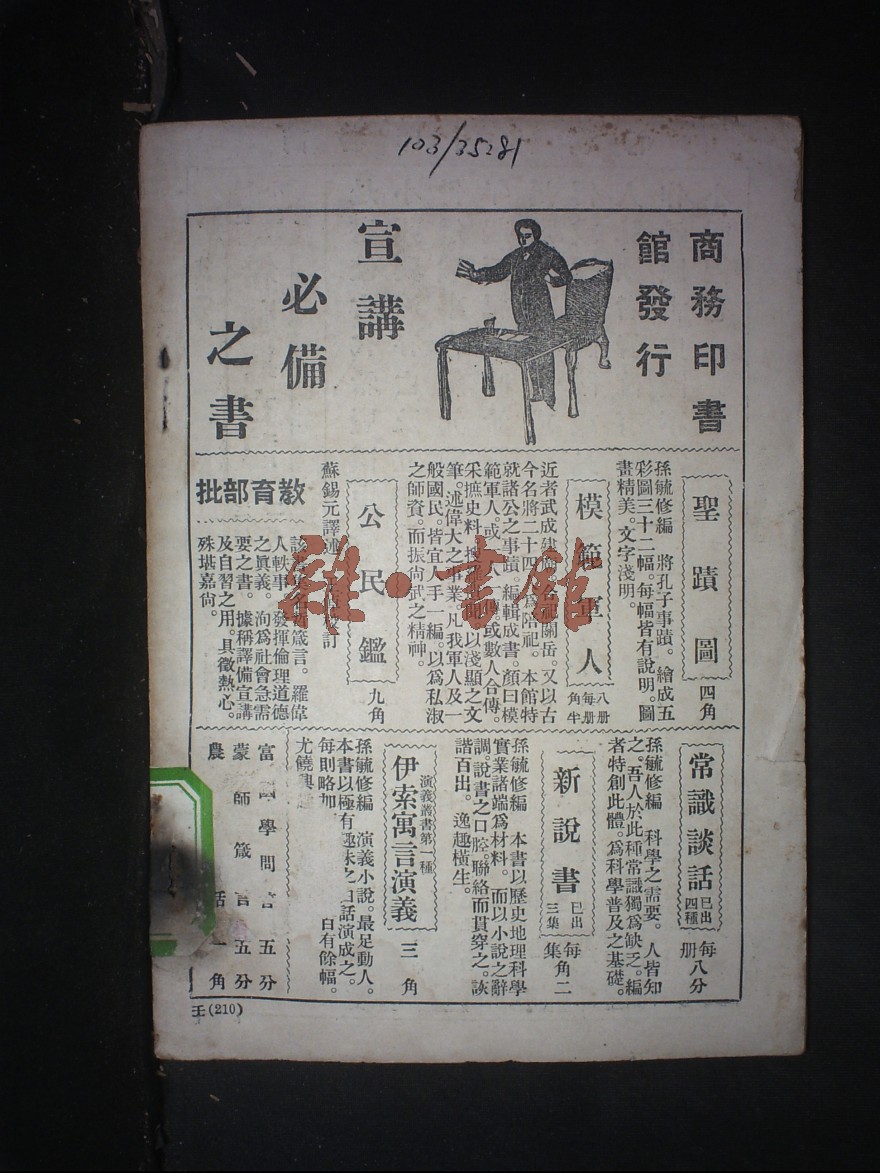 103/35281
商務印書
館發行
宣講
必備
之書
聖蹟圖
四角
孫毓修編 將孔子事蹟。繪成五
彩圖三十二幅。每幅皆有說明。圖
畫精美。文字淺明。
模範軍人
八册
每册
角半
近者武成
關岳。又以古
今名將二十四
爲陪祀。本館特
就諸公之事蹟。編輯成書。顏曰模
範軍人。或一人一傳。或數人合傳。
采摭史料。
以淺顯之文
筆。述偉大之事業。凡我軍人及一
般國民。皆宜人手一編。以爲私淑
之師資。而振尚武之精神。
公民鑑
九角
蘇錫元譯述
訂
教育部批
該書
箴言。羅偉
人軼事。發揮倫理道德
之眞義。洵爲社會急需
要之書。據稱譯備宣講
及自習之用。具徵熱心。
殊堪嘉尚。
常識談話
已出
四種
每册八分
孫毓修編 科學之需要。人皆知
之。吾人於此種常識獨爲缺乏。編
者特創此體。爲科學普及之基礎。
新說書
已出
三集
每集角二
孫毓修編 本書以歷史地理科學
實業諸端爲材料。而以小說之辭
調。說書之口腔。聯絡而貫穿之。詼
諧百出。逸趣橫生。
演義叢書第一種
伊索寓言演義
三角
孫毓修編 演義小說。最足動人。
本書以極有趣味之白話演成之。
每則略加
有餘幅。
尤饒興
富國學問 五分
蒙師箴言 五分
農話 一角
王(210)
雜·書館